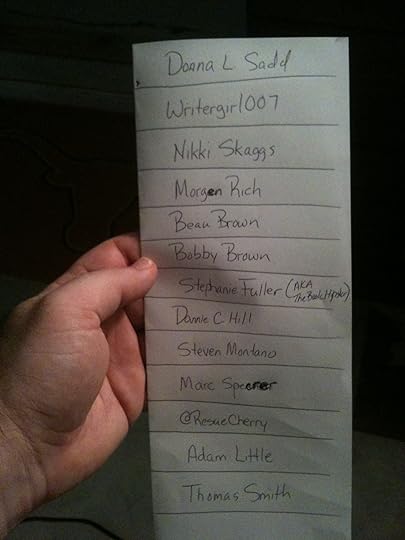 Donna L Sadd
Writergirl007
Nikki Skaggs
Morgen Rich
Beau Brown
Bobby Brown
Stephanie Fuller (AKA
The Book Hipster)
Dannie C Hill
Steven Montano
Marc Spencer
@ResueCherry
Adam Little
Thomas Smith